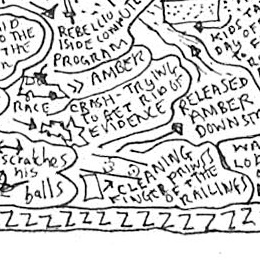 TO THE
IN THE
REBELLIOUS
INSIDE COMM
PROGRAM
KID'S
DAY OF
AMBER
RACE
CRASH. TRYING
TO GET RID OF
EVIDENCE
RELEASED
AMBER
DOWNST
scratches
his
balls
CLEANING
FINGER PRINTS
OF THE
RAILINGS
WA
LO
ZZZZZZZZZZZZZ